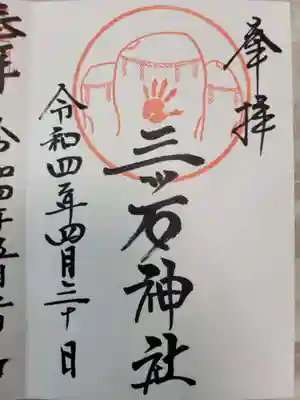 奉拝
三ツ石神社
令和四年四月三十日
奉拝
令和四年五月